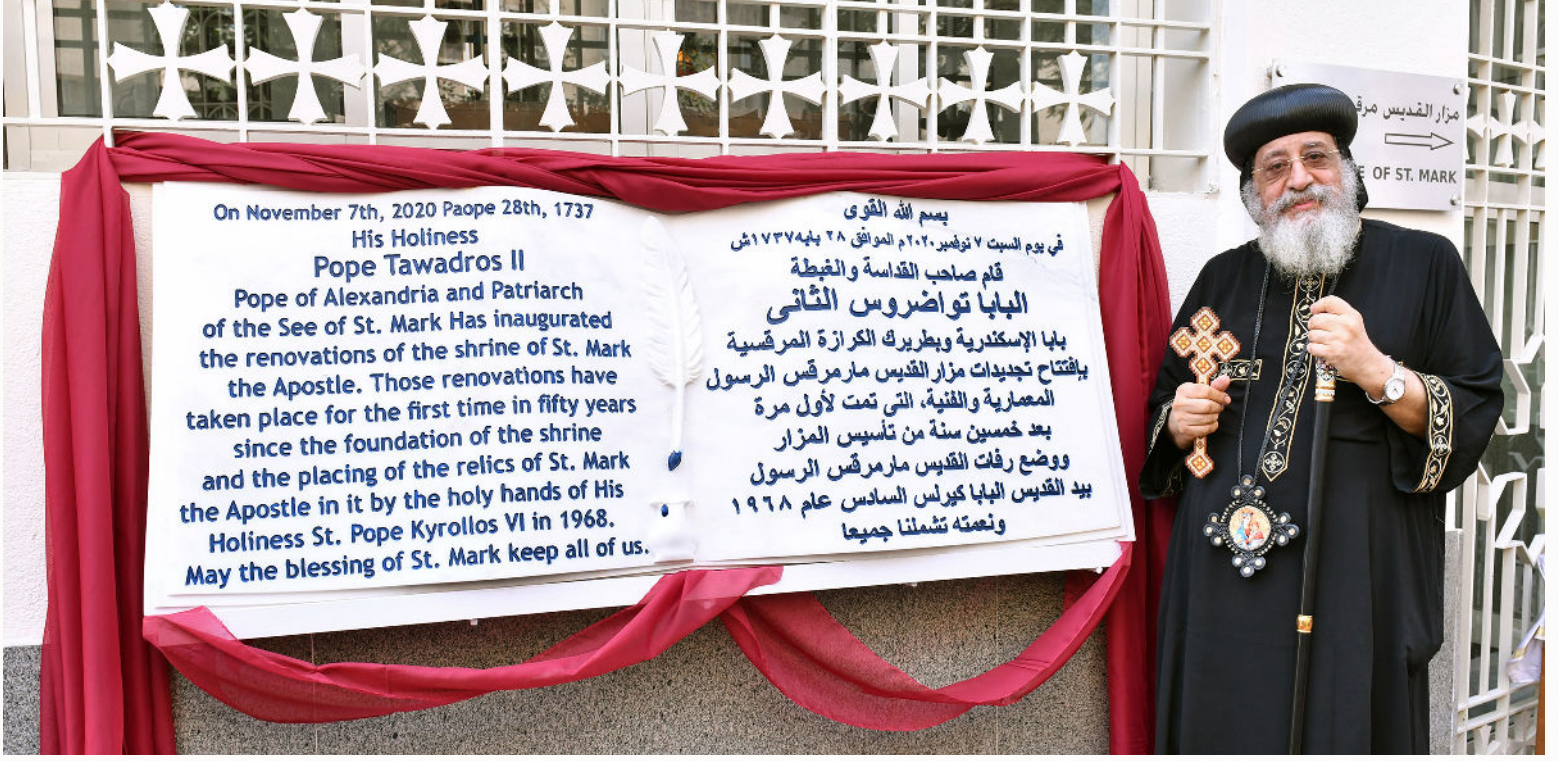 On November 7th, 2020 Paope 28th, 1737
His Holiness
Pope Tawadros II
Pope of Alexandria and Patriarch
of the See of St. Mark Has inaugurated
the renovations of the shrine of St. Mark
the Apostle. Those renovations have
taken place for the first time in fifty years
since the foundation of the shrine
and the placing of the relics of St. Mark
the Apostle in it by the holy hands of His
Holiness St. Pope Kyrollos VI in 1968.
May the blessing of St. Mark keep all of us.
بسم الله القوى
في يوم السبت ٧ نوفمبر ٢٠٢٠م الموافق ٢٨ بابه ١٧٣٧ش
قام صاحب القداسة والغبطة
البابا تواضروس الثانى
بابا الإسكندرية وبطريرك الكرازة المرقسية
بإفتتاح تجديدات مزار القديس مارمرقس الرسول
المعمارية والفنية، التى تمت لأول مرة
بعد خمسين سنة من تأسيس المزار
ووضع رفات القديس مارمرقس الرسول
بيد القديس البابا كيرلس السادس عام ١٩٦٨
ونعمته تشملنا جميعا
مزار القديس
OF ST. MARK